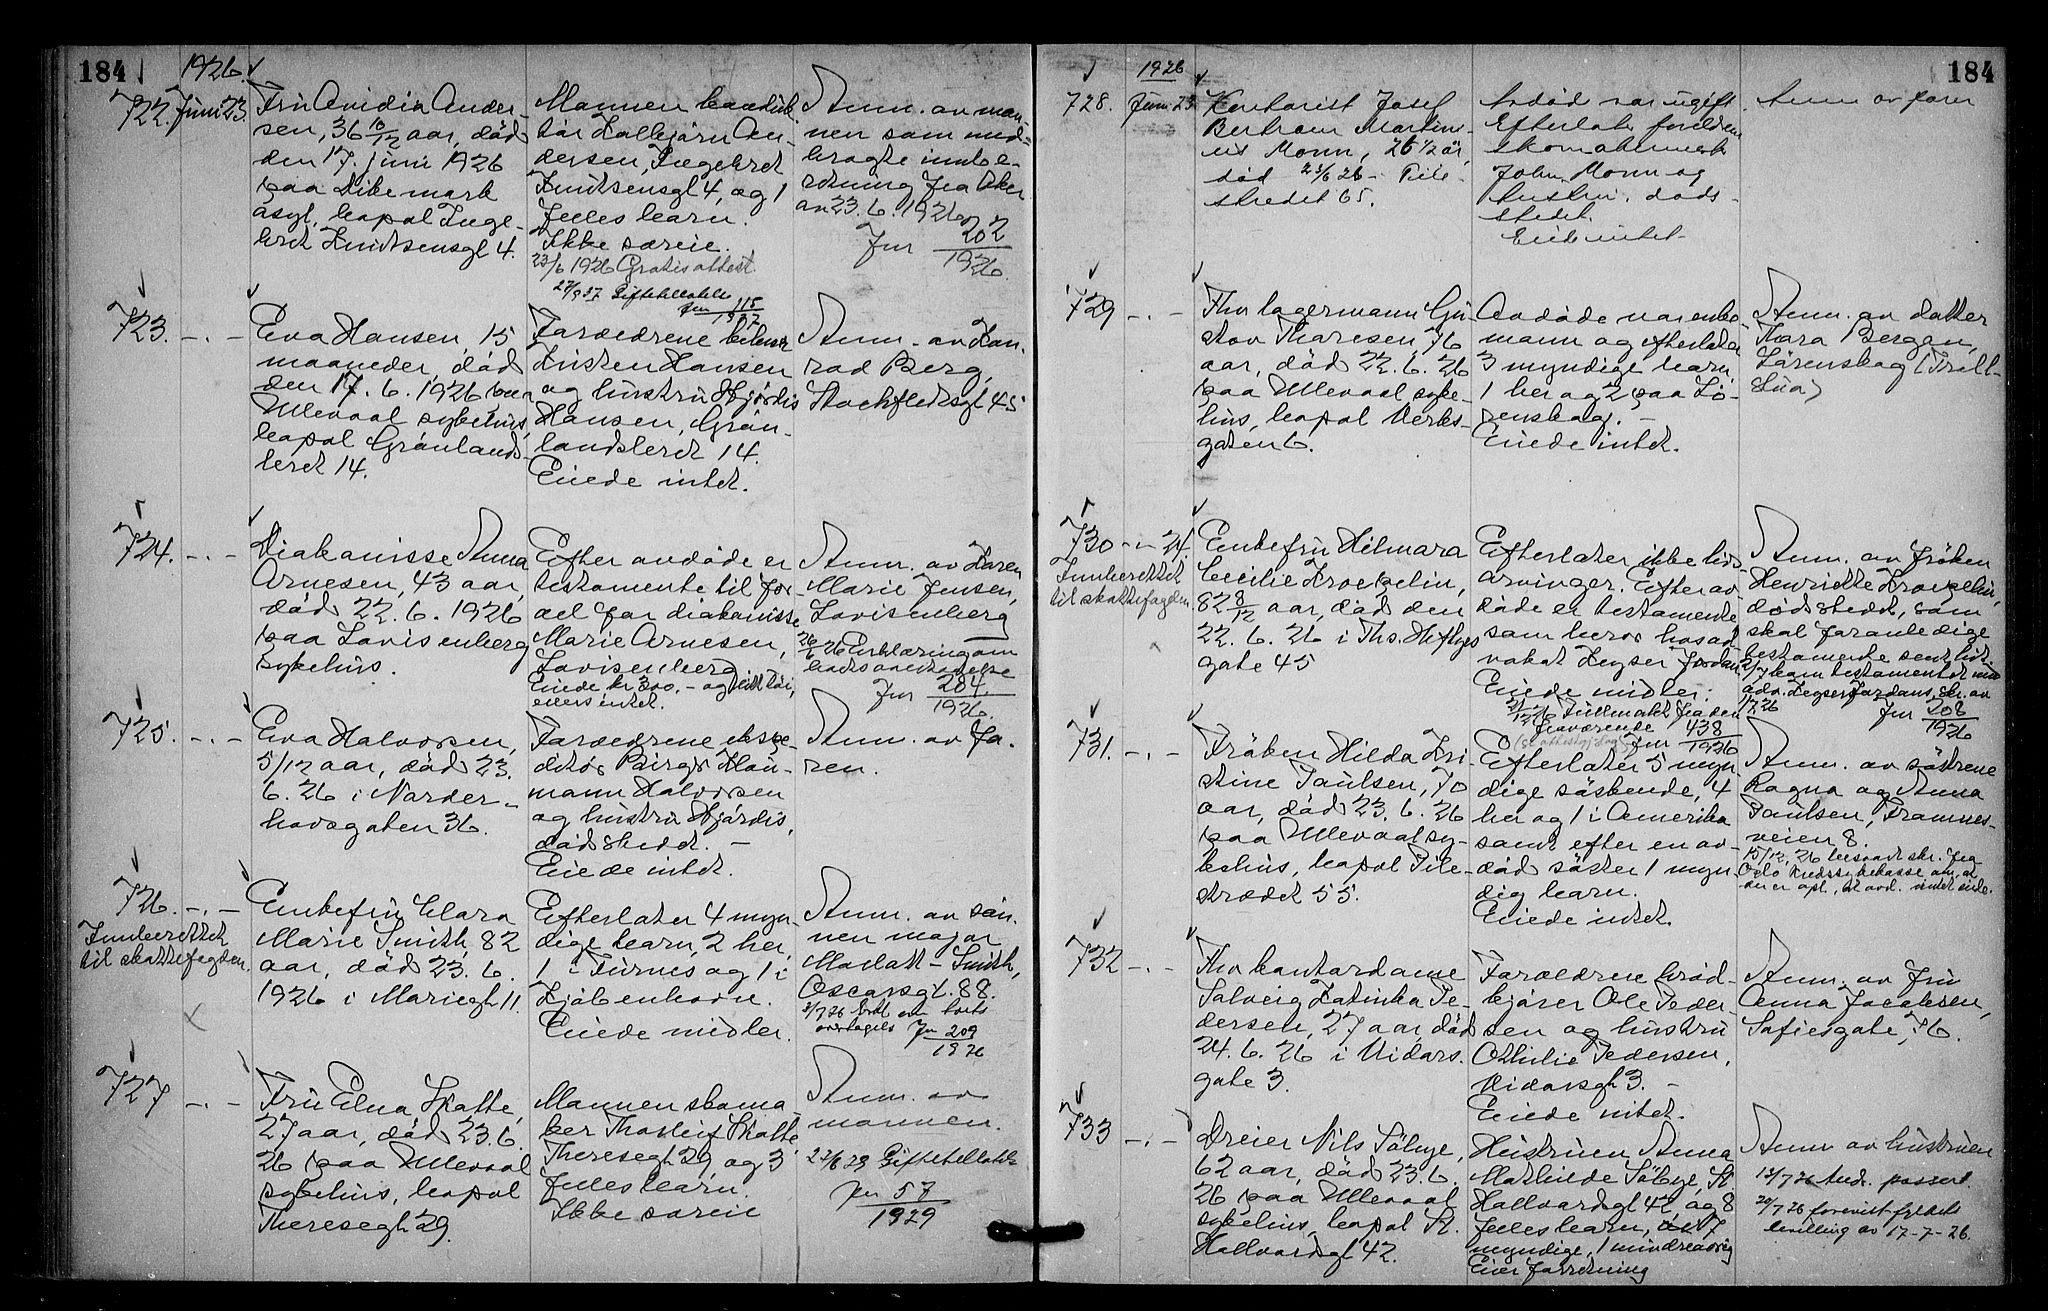 184
1926.
722. Juni 23.
Fru Avidia Ander-
sen, 36 10/12 aar, død
den 17. juni 1926
paa Dikemark
asyl, bopæl Inge-
bret Knudsensgt 4.
Mannen
An-
dersen, Ingebret
Knudsensgt 4, og 1
felles barn.
Ikke særeie.
23/6 1926 Gratisattest.
Giftetillatelse
Jnr 115
1937
Anm. av man-
nen som med-
bragte innbe-
retning fra Aker
av 23.6.1926
Jnr 202
1926.
723. -.-
Eva Hansen, 15
maaneder, død
den 17.6.1926 paa
Ullevaal sykehus,
bopæl Grønlands-
leret 14.
Forældrene
Kristen Hansen
og hustru Hjørdis
Hansen, Grøn-
landsleret 14.
Eiede intet.
Anm. av Kon-
rad Berg,
Stockfletsgt 45
724. -.-
Diakonisse Anna
Arnesen, 43 aar,
død 22.6.1926
paa Lovisenberg
sykehus.
Efter avdøde er
testamente til for-
del for diakonisse
Marie Arnesen,
Lovisenberg
Eiede kr 300,- og litt tøi,
ellers intet.
Anm. av Karen
Marie Jensen,
Lovisenberg
26/6 26 Erklæring om
boets overtagelse
Jnr 204
1926.
725. -.-
Eva Halvorsen,
5/12 aar, død 23.
6.26 i Norder-
hovsgaten 36.
Forældrene ekspe-
ditør Birger Hau-
mann Halvorsen
og hustru Hjørdis,
dødsstedet. -
Eiede intet.
Anm. av fa-
ren.
726. -.-
Innberettet
til skattefogden.
Enkefru Clara
Marie Smith, 82
aar, død 23.6.
1926 i Mariesgt 11.
Efterlater 4 myn-
dige barn, 2 her,
1 i Furnes og 1 i
Kjøbenhavn.
Eiede midler.
Anm. av søn-
nen major
Smith,
Oscarsgt. 88.
3/7 26 erkl. om boets
overtagelse Jnr 209
1926
727 -.-
Fru Elna Skatte,
27 aar, død 23.6.
26 paa Ullevaal
sykehus, bopæl
Theresesgt 29.
Mannen skoma-
ker Thorleif Skatte
Theresesgt 29, og 3
felles barn.
Ikke særeie
Anm. av
mannen.
Giftetillatelse
Jnr 57
1929
184
1926
728. Juni 23.
Kontorist Josef
Bertram Martini-
us Monn, 26 1/2 år,
død 23/6 26 - Pile-
stredet 65.
Avdød var ugift.
Efterlot foreldrene
skomakermester
John Monn og
hustru, døds-
stedet.
Eiet intet
Anm av faren
729 -.-
Fhv lagermann Gu-
stav Thoresen, 76
aar, død 22.6.26
paa Ullevaal syke-
hus, bopæl Verks-
gaten 6.
Avdøde var enke-
mann og efterlater
3 myndige barn,
1 her og 2 paa Lø-
renskog. -
Eiede intet.
Anm. av datter
Thora Bergen,
Lørenskog (Troll-
stua)
730 -.- 24.
Innberettet
til skattefogden
Enkefru Hilmara
Cecilie Kroepelin,
82 8/12 aar, død den
22.6.26 i Ths. Heftyes
gate 45
Efterlater ikke livs-
arvinger. Efter av-
døde er testamente
som beror hos ad-
vokat Keyser Jordan
Eiede midler.
Fullmakt fra den
fraværende 438
Jnr 1926
Anm. av frøken
Henriette Kroepelin,
dødsstedet, som
skal foranledige
testamente sendt hit.
2/7 kom testamentet med
adv. Keyser Jordans skr. av
1/7 26
Jnr 208
1926
731. -.-
Frøken Hilda Kri-
stine Paulsen, 70
aar, død 23.6.26
paa Ullevaal sy-
kehus, bopæl Pile-
strædet 55.
Efterlater 5 myn-
dige søskende, 4
her og 1 i Amerika
samt efter en av-
død søster 1 myn-
dig barn.
Eiede intet.
Anm. av søstrene
Ragna og Anna
Paulsen, Framnes-
veien 8.
15/12 26 besvart skr. fra
Oslo Kredssykekasse om, at
der er opl., at avd. intet eide.
732 -.-
Fhv kontordame
Solveig Katinka Pe-
dersen, 27 aar, død
24.6.26 i Vidars-
gate 3.
Forældrene brød-
kjører Ole Peder-
sen og hustru
Othilie Pedersen,
Vidarsgt 3. -
Eiede intet.
Anm. av fru
Anna Jacobsen,
Sofiesgate 76.
733 -.-
Dreier Nils Sølvye,
62 aar, død 23.6.
26 paa Ullevaal
sykehus, bopæl St.
Hallvardsgt 42.
Hustruen Anna
Mathilde Sølvye, St
Hallvardsgt 42, og 8
felles barn, 7
myndige, 1 mindreaarig
Eier forretning
Anm av hustruen
12/7 26 Andr. passert.
20/7 26 forevist
bevilling av 17-7-26.